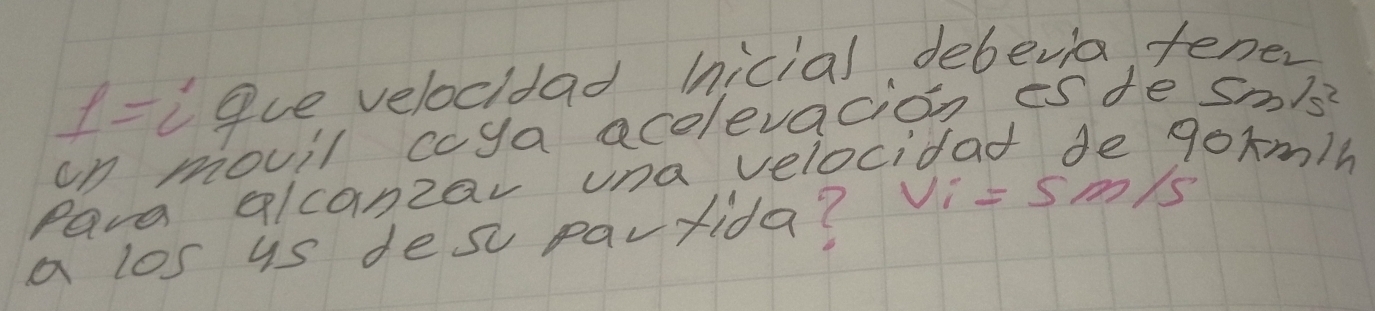 1=¿que velocidad inicial deberia tener
un movil cuya aceleración es de 5m/s²
para alcanzar una velocidad de 90km/h
a los 4s de su partida? Vi=5m/s